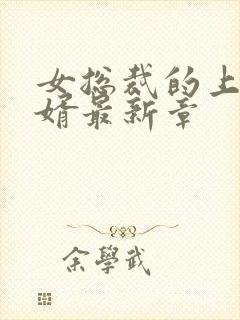 女总裁的上
婿最新章
余學武